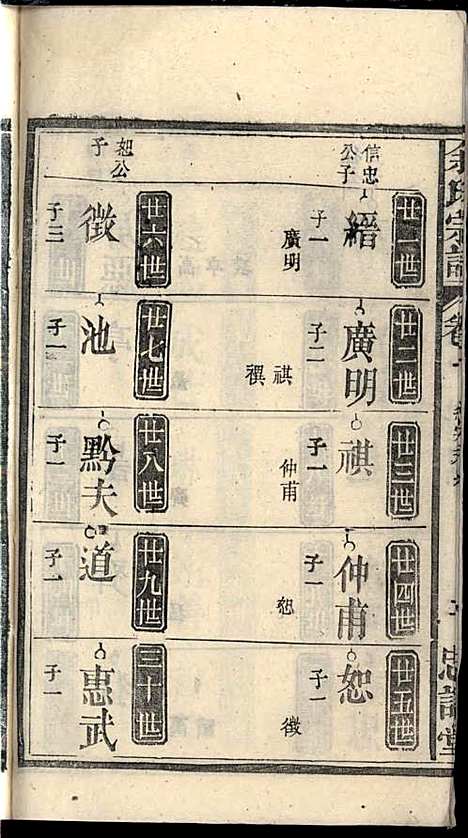 余氏宗譜
卷一
忠謨堂
信忠
公子
廿一世
縉
子一
廣明
廿二世
廣明
子二
祺
禩
廿三世
祺
子一
仲甫
廿四世
仲甫
子一
恕
廿五世
恕
子一
徵
恕公
子
廿六世
徵
子三
廿七世
池
子一
廿八世
黔夫
子一
廿九世
道
子一
三十世
惠武
子一